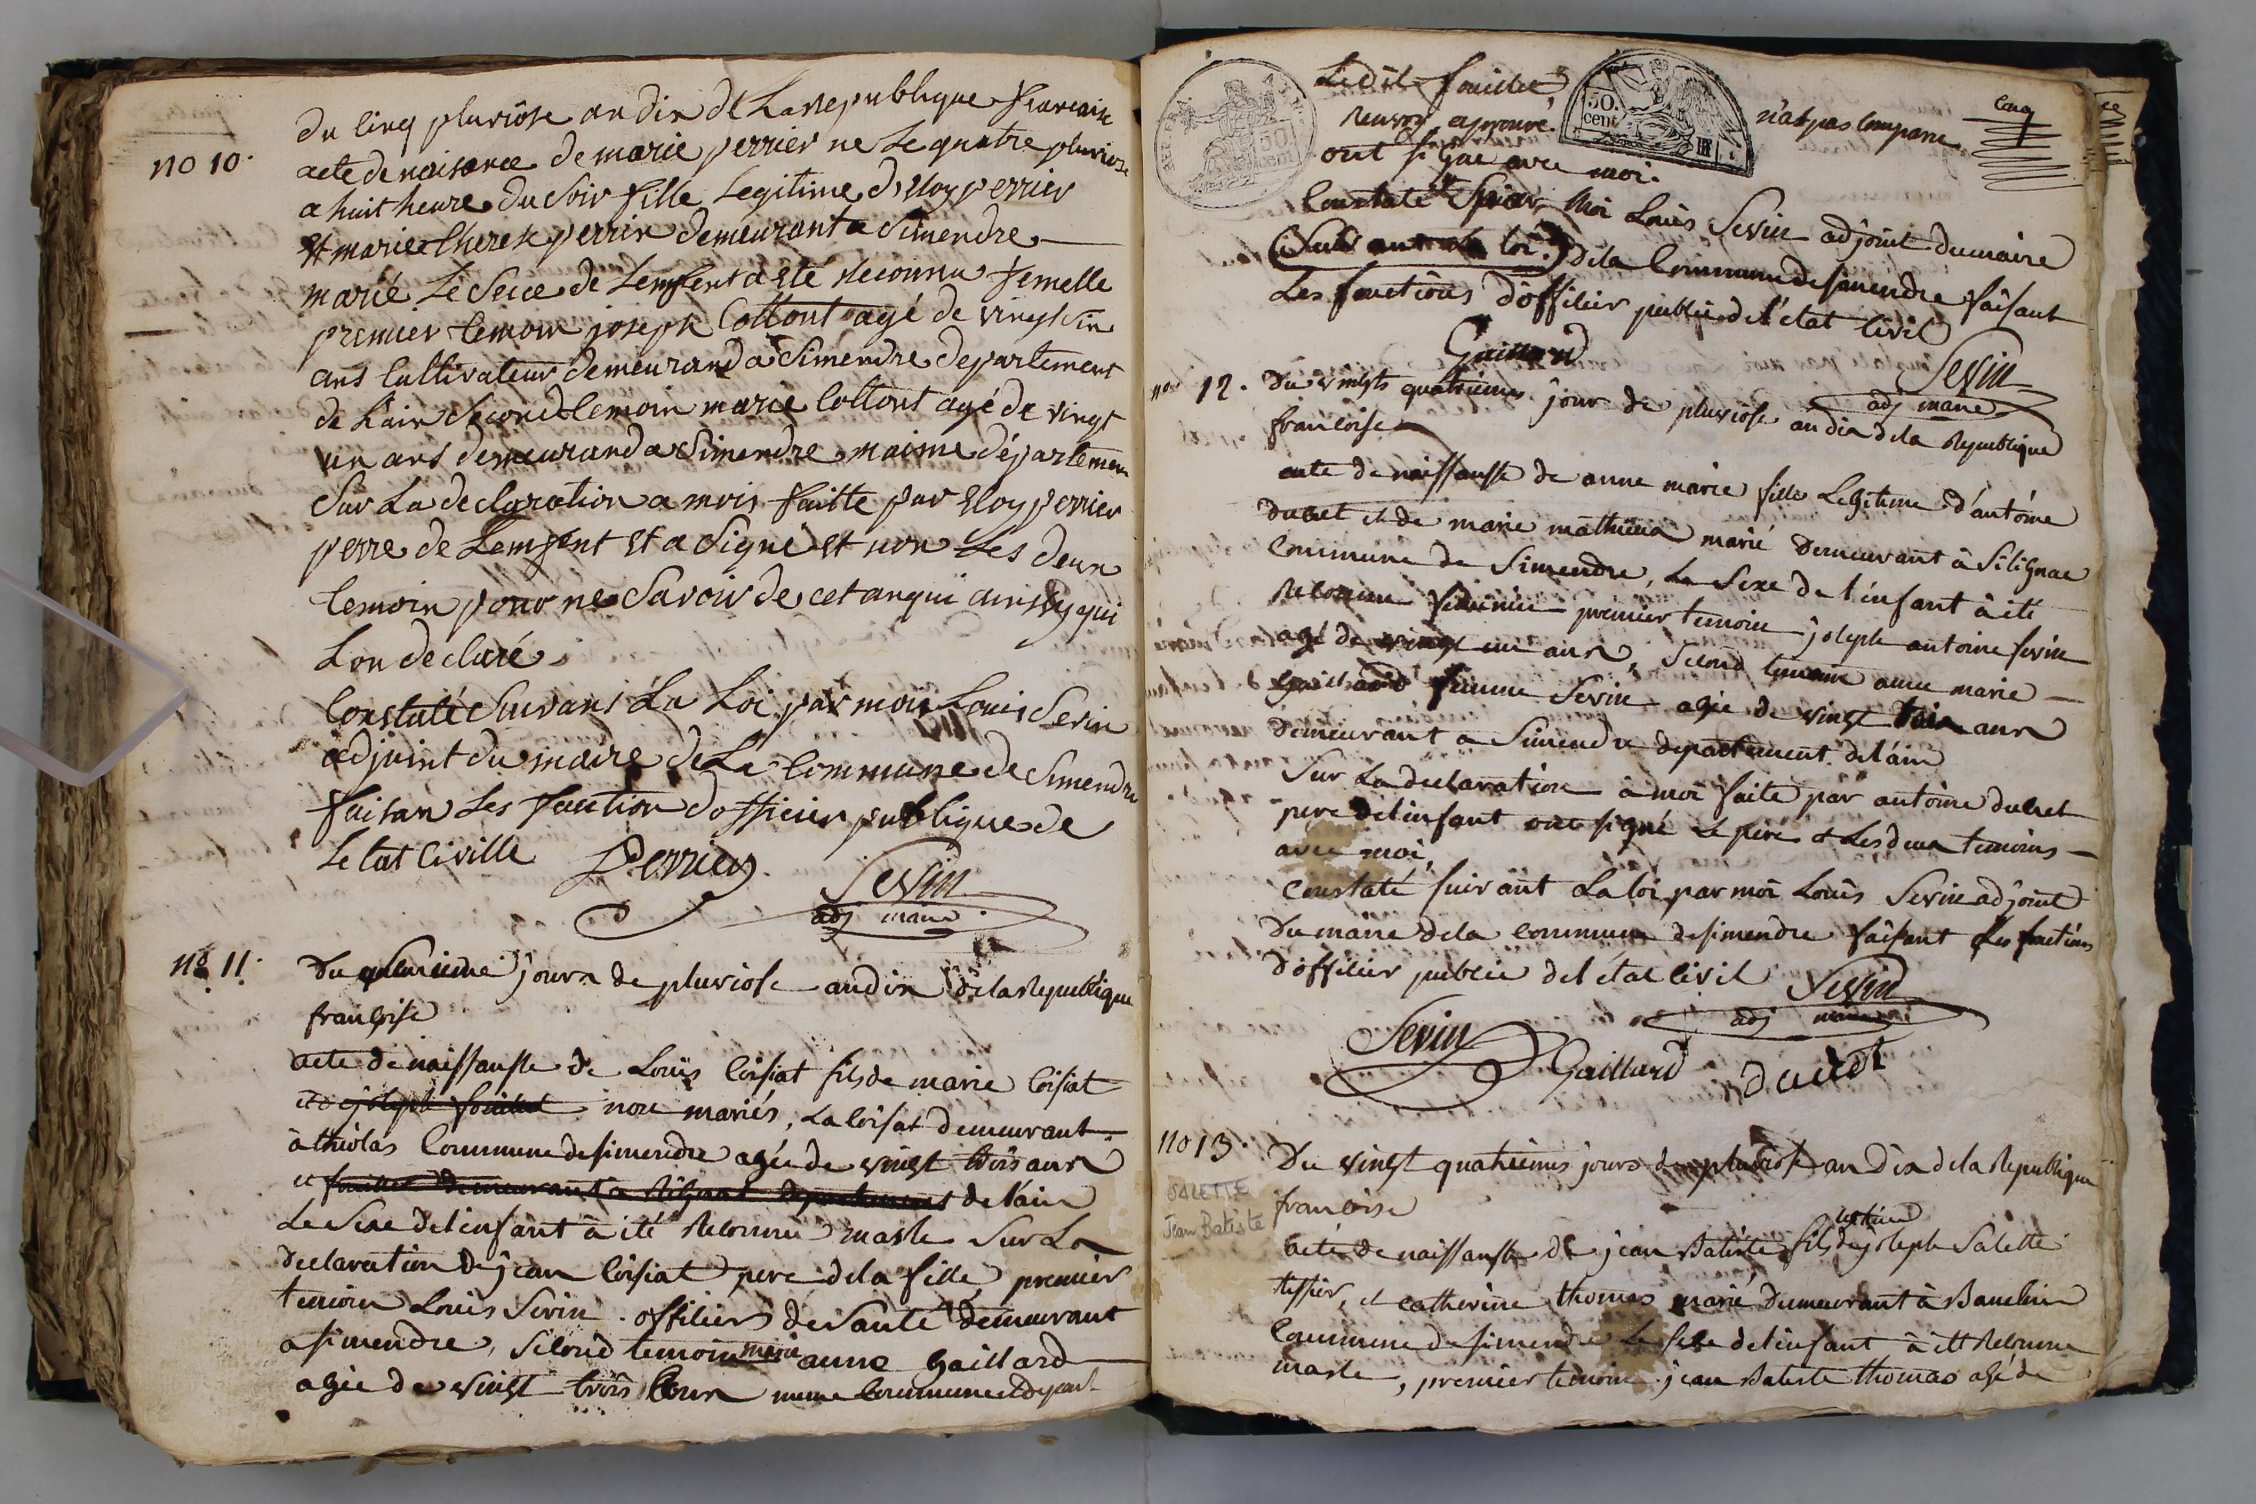 du cinq pluviôse an dix de La republique francaise
no 10. acte de naisance de marie perrier ne Le quatre pluviose
a huit heure du Soir fille Legitime d'Eloy perrier
Et marie therese perrin demeurant a Simendre
marié Le Sexe de Lenfent a ete reconnu femelle
premier temoin joseph Cottont agé de vingt sin
ans Cultivateur demeurand a Simendre departement
de L'ain Second temoin marie Cottont agé de vingt
un ans demeurand a Simendre maime département
Sur La declaration a mois faitte par Eloy perrier
perre de Lenfent Et a Signé et non Les deux
temoin pour ne Savoir de cet anqui ainsy qui
Lon declaré
Constaté Suivans La Loi par moi Louis Sevin
adjoint du maire de La Commune de Simendre
faisan Les fonction d'officier publique de
Letat Civille
Perrier
Sevin
adj maire
no 11. Du jours de pluviose an dix de la Republique
françoise
acte de naissansse de Louis Loisiat fils de marie Loisiat
et de joseph fouillet non mariés, La loisiat demeurant
à thiolas Commune de simendre agée de vingt trois ans
et fouillet demeurant a departement de l'ain
Le Sexe de l'enfant à été Reconnu masle Sur La
declaration de jean loisiat pere de la fille, premier
temoin Louis Sevin officier de Santé demeurant
a simendre, second temoin marie anne Gaillard
agée de vingt trois meme Commune et depart.
Le dit fouillet n'at pas Comparu
Renvoy approuvé.
50. cent
Cinq
ont signé avec moi.
Constaté par Moi Louis Sevin adjoint du maire
(Suivant la loi.) de la Commune de simendre faisant
Les fonctions d'officier public de l'état Civil
Gaillard
Sevin
adj maire
no 12. Du vingts quatriemes jour de pluviose an dix de la Republique
françoise
acte de naissansse de anne marie fille Legitime d'antoine
Ducret et de marie mathieu marié Demeurant à Silignac
Commune de Simendre, Le Sexe de l'enfant à été
Reconnu feminin premier temoin joseph antoine sevin
agé de vingt un ans, second temoin anne marie
Gaillard femme Sevin agée de vingt trois ans
demeurant a Simendre departement de l'ain
Sur La declaration à moi faite par antoine ducret
pere de l'enfant ont signé Le père et Les deux temoins
avec moi,
Constaté suivant La loi par moi Louis Sevin adjoint
du maire de la commune de simendre faisant Les fonctions
d'officier public de l'état Civil
Sevin
adj maire
Sevin
Gaillard
ducret
no 13. Du vingt quatriemes jours de pluviose an dix de la Republique
SALETTE
Jean Batiste
françoise
acte de naissansse de jean Batiste fils legitime de joseph Salette
tessier, et catherine thomas marié Demeurant à
Commune de simendre Le sexe de l'enfant à été Reconnu
masle, premier temoin jean Batiste thomas agé de